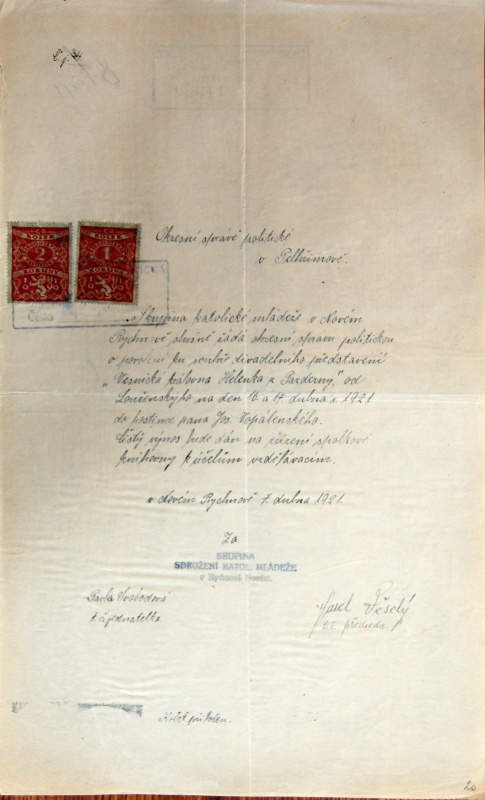 Okresní správě politické
v Pelhřimově.
KOLEK
2
KORUNY
KOLEK
1
KORUNA
Číslo
Skupina katolické mládeže v Novém
Rychnově slušně žádá okresní správu politickou
o povolení ku divadelního představení
„Vesnická královna Helenka z Pazderny," od
na den 16 a 17 dubna r. 1921
do hostince pana Jos. Topálenského.
Čistý výnos bude dán na zřízení spolkové
knihovny k účelům vzdělávacím.
v Novém Rychnově 7. dubna 1921.
Za
SKUPINA
SDRUŽENÍ KATOL. MLÁDEŽE
v Novém.
Pavla Svobodová
t. č. jednatelka
Karel Veselý
t. č. předseda.
Kolek
20